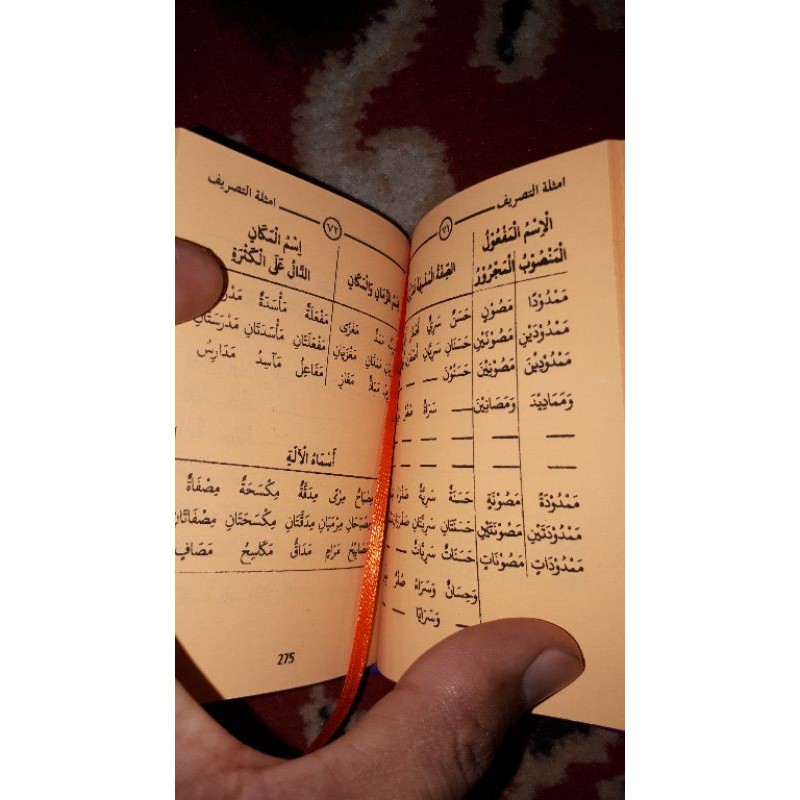 امثلة التصريف ٧١
الْاِسْمُ الْمَفْعُولُ
الْمَنْصُوبُ الْمَجْرُورُ الصِّفَةُ الْمُشَبَّهَةُ
مَمْدُودًا مَصُونٍ حَسَنٌ سَرِيٌّ
مَمْدُودَيْنِ مَصُونَيْنِ حَسَنَانِ سَرِيَّانِ
مَمْدُودِينَ مَصُونِينَ حَسَنُونَ — —
وَمَمَادِيدَ وَمَصَانِينَ — سَرَاةٌ صُفْرٌ
— — — —
— — — —
مَمْدُودَةً مَصُونَةٍ حَسَنَةٌ سَرِيَّةٌ
مَمْدُودَتَيْنِ مَصُونَتَيْنِ حَسَنَتَانِ سَرِيَّتَانِ
مَمْدُودَاتٍ مَصُونَاتٍ حَسَنَاتٌ سَرِيَّاتٌ —
وَحِسَانٌ وَسَرَاةٌ صُفْرٌ
— وَسَرَايَا — —
٧٢ امثلة التصريف
اِسْمُ الْمَكَانِ
الزَّمَانِ وَالْمَكَانِ الدَّالُّ عَلَى الْكَثْرَةِ
مَمَدٌّ مَغْزًى مَفْعَلَةٌ مَأْسَدَةٌ
مَمَدَّانِ مَغْزَيَانِ مَفْعَلَتَانِ مَأْسَدَتَانِ مَدْرَسَتَانِ
مَمَادُّ مَغَازٍ مَفَاعِلُ مَآسِدُ مَدَارِسُ
أَسْمَاءُ الْآلَةِ
مِرْمًى مِدَقَّةٌ مِكْسَحَةٌ مِصْفَاةٌ
مِرْمَيَانِ مِدَقَّتَانِ مِكْسَحَتَانِ مِصْفَاتَانِ
مَرَامٍ مَدَاقُّ مَكَاسِحُ مَصَافٍ
275